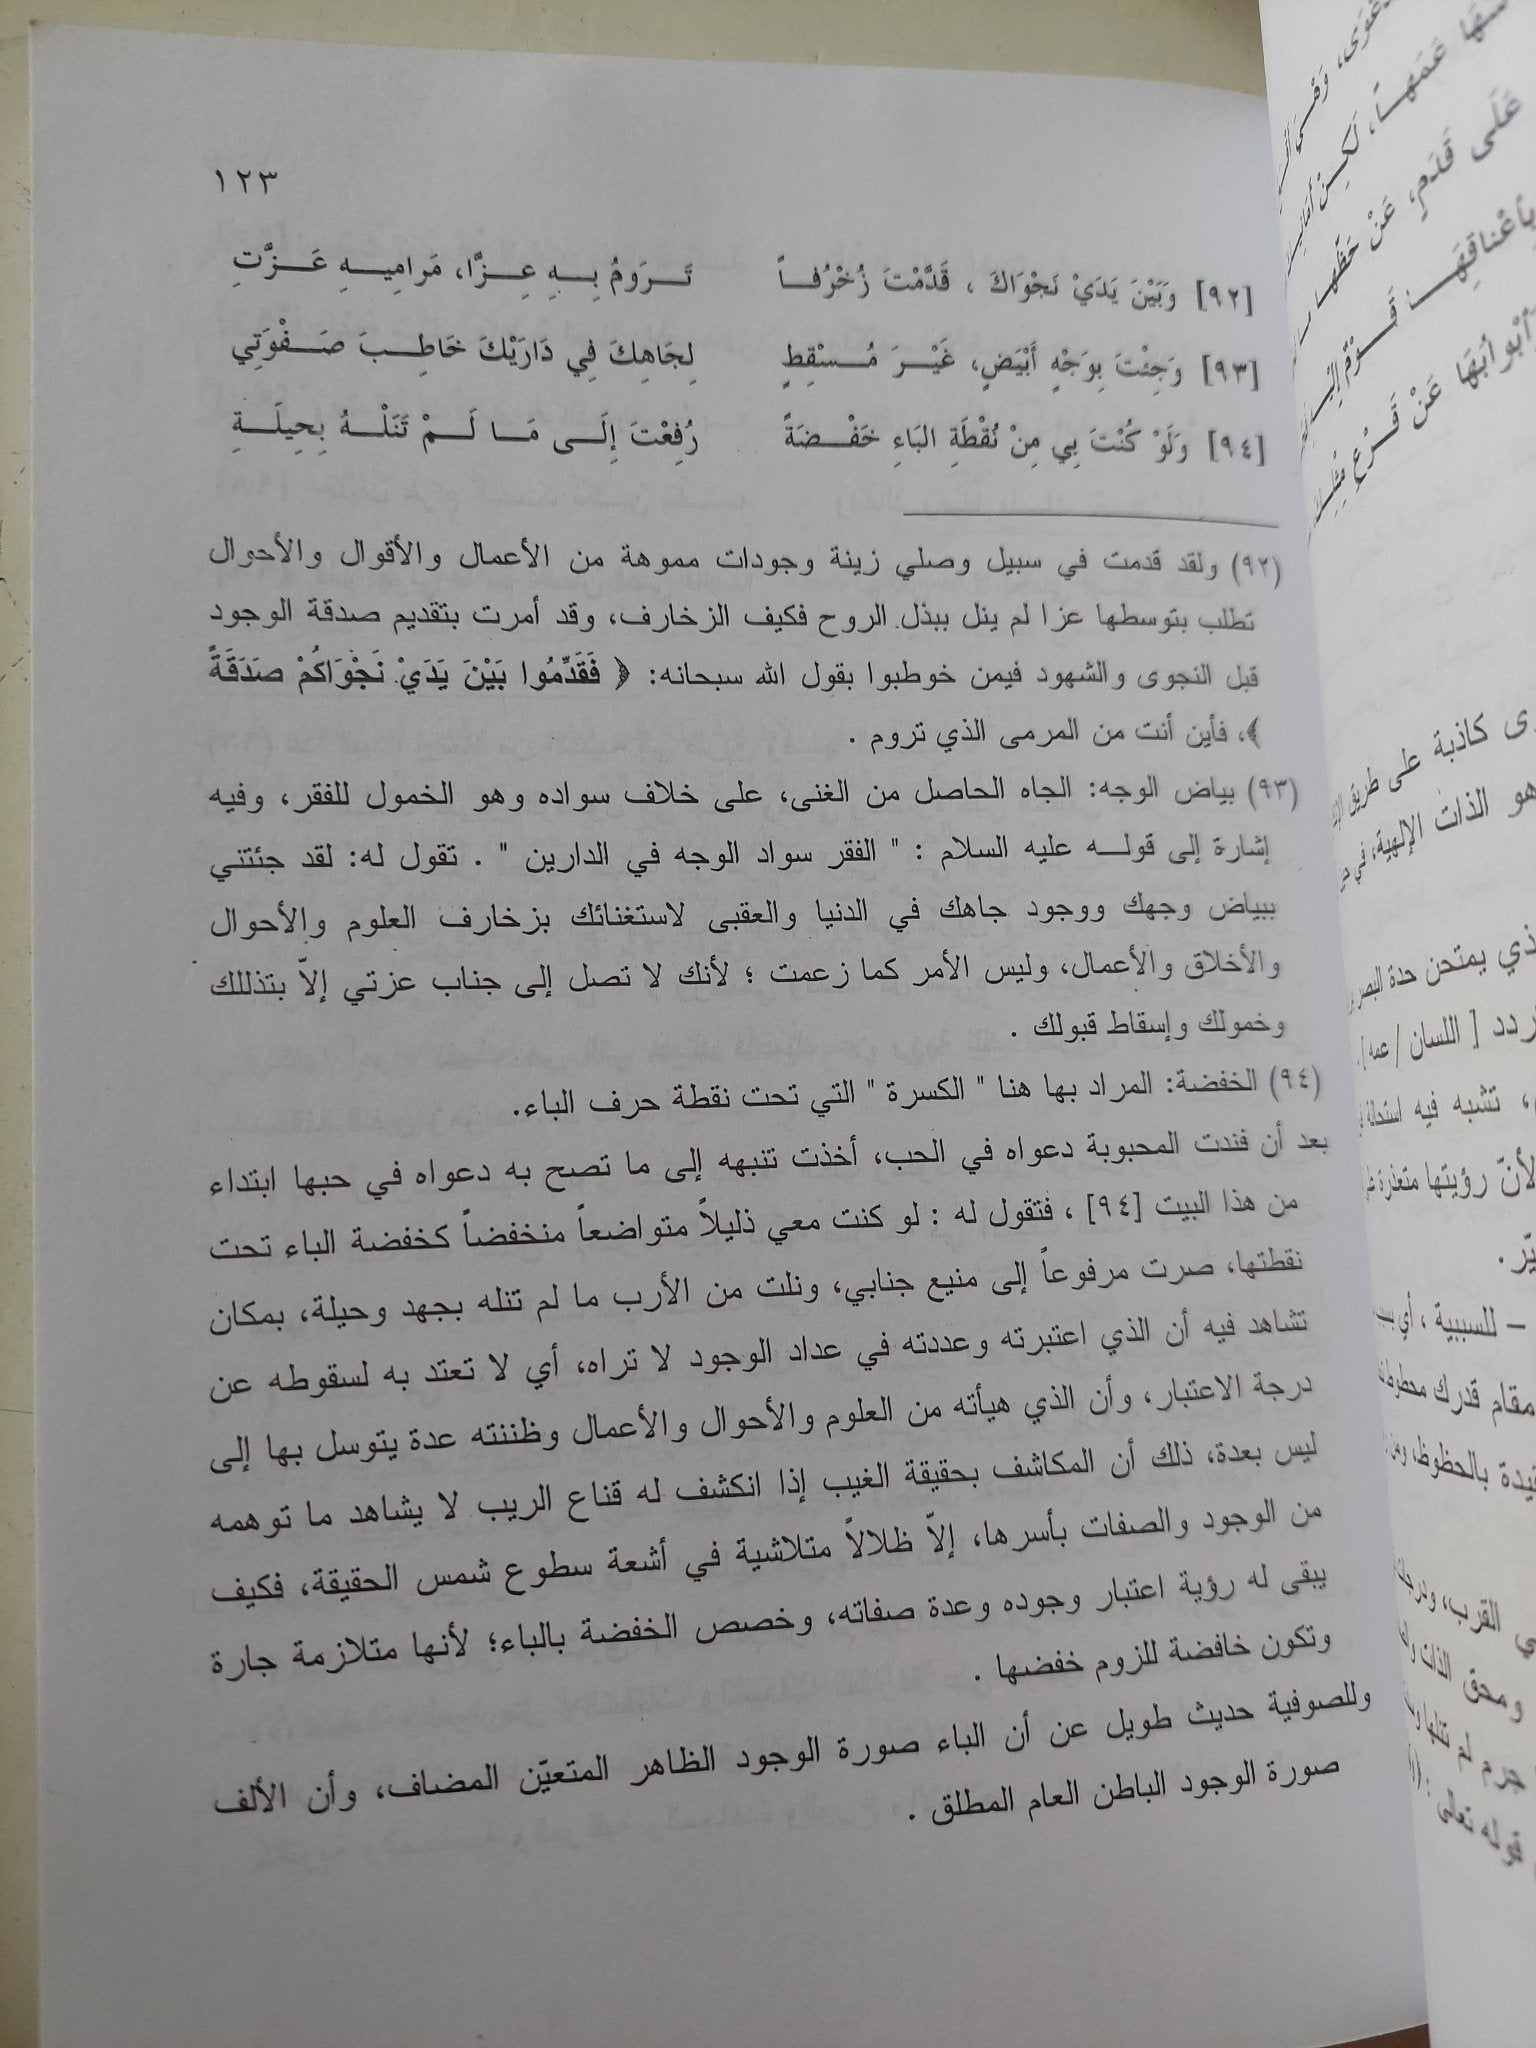 ١٢٣
[٩٢] وَبَيْنَ يَدَيْ نَجْوَاكَ ، قَدَّمْتَ زُخْرُفـــاً تَـــرَومُ بِـــهِ عِـــزًّا، مَرامِيـــهِ عَـــزَّتِ
[٩٣] وَجِئْتَ بِوَجْهٍ أَبْيَضٍ، غَيْـــرَ مُـــسْقِطٍ لِجَاهِكَ فِي دَارَيْكَ خَاطِـــبَ صَـــفْوَتِي
[٩٤] وَلَوْ كُنْتَ بِي مِنْ نُقْطَةِ البَاءِ خَفْـــضَةً رُفِعْتَ إِلَـــى مَـــا لَـــمْ تَنَلْـــهُ بِحِيلَـــةِ
(٩٢) ولقد قدمت في سبيل وصلي زينة وجودات مموهة من الأعمال والأقوال والأحوال
تطلب بتوسطها عزا لم ينل ببذل الروح فكيف الزخارف، وقد أمرت بتقديم صدقة الوجود
قبل النجوى والشهود فيمن خوطبوا بقول الله سبحانه: ﴿ فَقَدِّمُوا بَيْنَ يَدَيْ نَجْوَاكُمْ صَدَقَةً
﴾، فأين أنت من المرمى الذي تروم .
(٩٣) بياض الوجه: الجاه الحاصل من الغنى، على خلاف سواده وهو الخمول للفقر، وفيه
إشارة إلى قولـــه عليه السلام : " الفقر سواد الوجه في الدارين " . تقول له: لقد جئتني
ببياض وجهك ووجود جاهك في الدنيا والعقبى لاستغنائك بزخارف العلوم والأحوال
والأخلاق والأعمال، وليس الأمر كما زعمت ؛ لأنك لا تصل إلى جناب عزتي إلاّ بتذللك
وخمولك وإسقاط قبولك .
(٩٤) الخفضة: المراد بها هنا " الكسرة " التي تحت نقطة حرف الباء.
بعد أن فندت المحبوبة دعواه في الحب، أخذت تنبهه إلى ما تصح به دعواه في حبها ابتداء
من هذا البيت [٩٤] ، فتقول له : لو كنت معي ذليلاً متواضعاً منخفضاً كخفضة الباء تحت
نقطتها، صرت مرفوعاً إلى منيع جنابي، ونلت من الأرب ما لم تنله بجهد وحيلة، بمكان
تشاهد فيه أن الذي اعتبرته وعددته في عداد الوجود لا تراه، أي لا تعتد به لسقوطه عن
درجة الاعتبار، وأن الذي هيأته من العلوم والأحوال والأعمال وظننته عدة يتوسل بها إلى
ليس بعدة، ذلك أن المكاشف بحقيقة الغيب إذا انكشف له قناع الريب لا يشاهد ما توهمه
من الوجود والصفات بأسرها، إلاّ ظلالاً متلاشية في أشعة سطوع شمس الحقيقة، فكيف
يبقى له رؤية اعتبار وجوده وعدة صفاته، وخصص الخفضة بالباء؛ لأنها متلازمة جارة
وتكون خافضة للزوم خفضها .
وللصوفية حديث طويل عن أن الباء صورة الوجود الظاهر المتعيّن المضاف، وأن الألف
صورة الوجود الباطن العام المطلق .
عَلَى قَدَمٍ، عَنْ حَظِّهَا
كاذبة على طريق
هو الذات الإلهية، في
يمتحن حدة البصر
[ اللسان / عمه ]
تشبه فيه استحالة
لأنّ رؤيتها متعذرة
– للسببية ، أي
مقام قدرك
بالحظوظ،
القرب،
ومحق الذات
قوله تعالى :